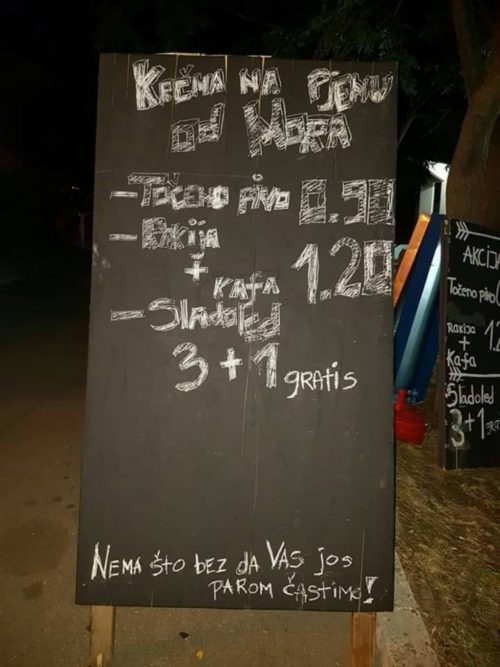 KFČMA NA PJENU
OD MORA
- TOČENO PIVO 0.90
- RAKIJA
+
KAFA 1.20
- SlADOlED
3 + 1 gRATIS
NEMA što bez da VAS jos
PAROM ČASTIMO!
AKCIJA
Točeno pivo
RAKIJA
+
Kafa
Sladoled
3+1